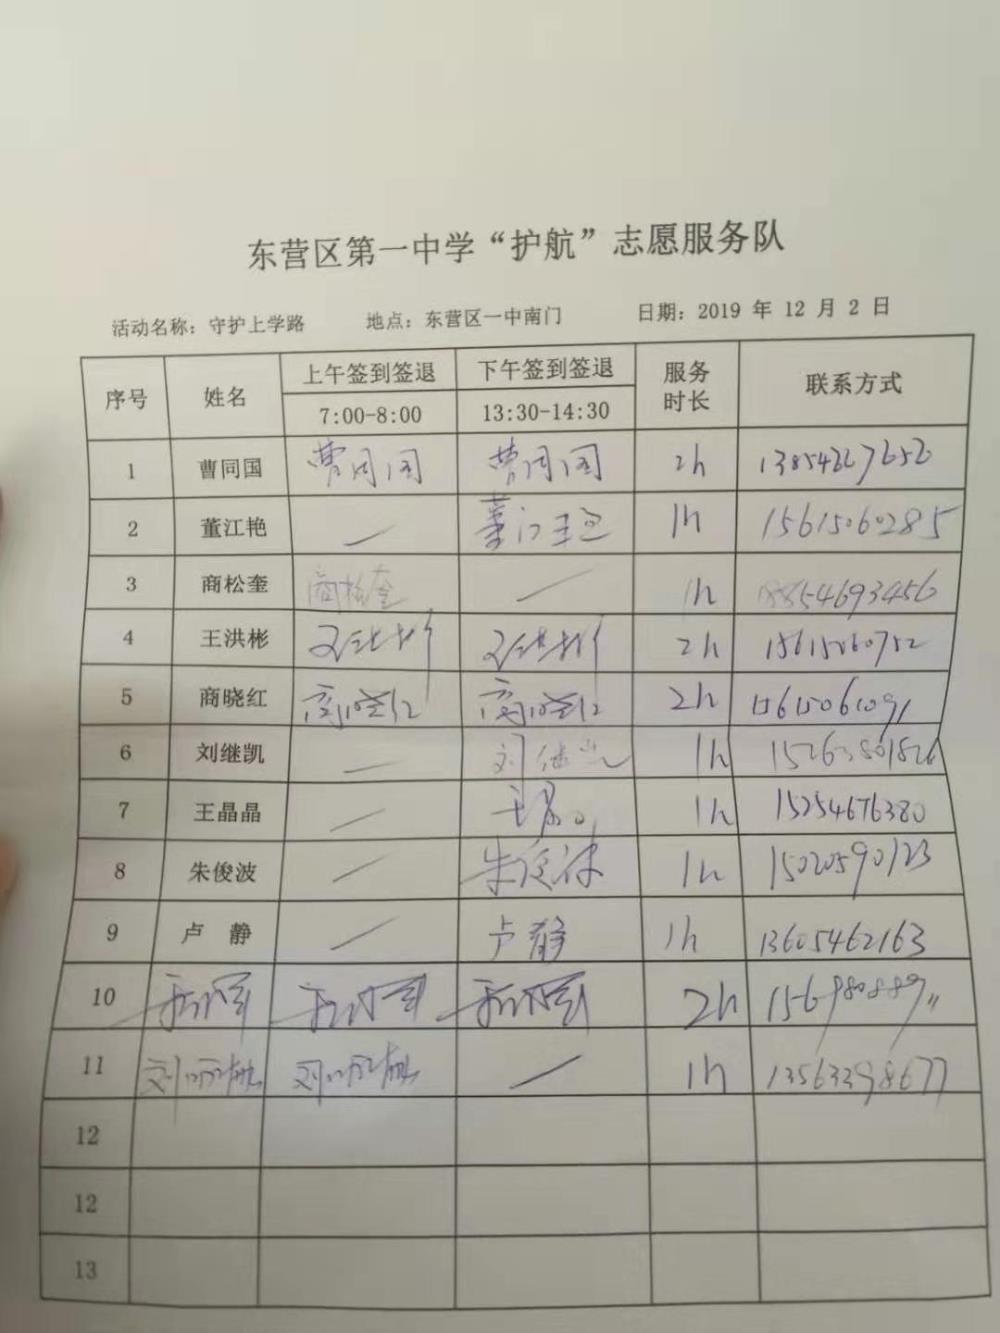 东营区第一中学“护航”志愿服务队
活动名称：守护上学路 地点：东营区一中南门 日期：2019 年 12 月 2 日
序号 姓名 上午签到签退 下午签到签退 服务时长 联系方式
7:00-8:00 13:30-14:30
1 曹同国 曹同国 曹同国 2h
2 董江艳 — 董江艳 1h 15615060285
3 商松奎 商松奎 — 1h 18854693456
4 王洪彬 王洪彬 王洪彬 2h 15615060752
5 商晓红 商晓红 商晓红 2h 15615061091
6 刘继凯 — 刘继凯 1h 15263801826
7 王晶晶 — 王晶晶 1h 15254676380
8 朱俊波 — 朱俊波 1h 15020590123
9 卢 静 — 卢静 1h 13605462163
10 2h
11 — 1h 13563398677
12
12
13